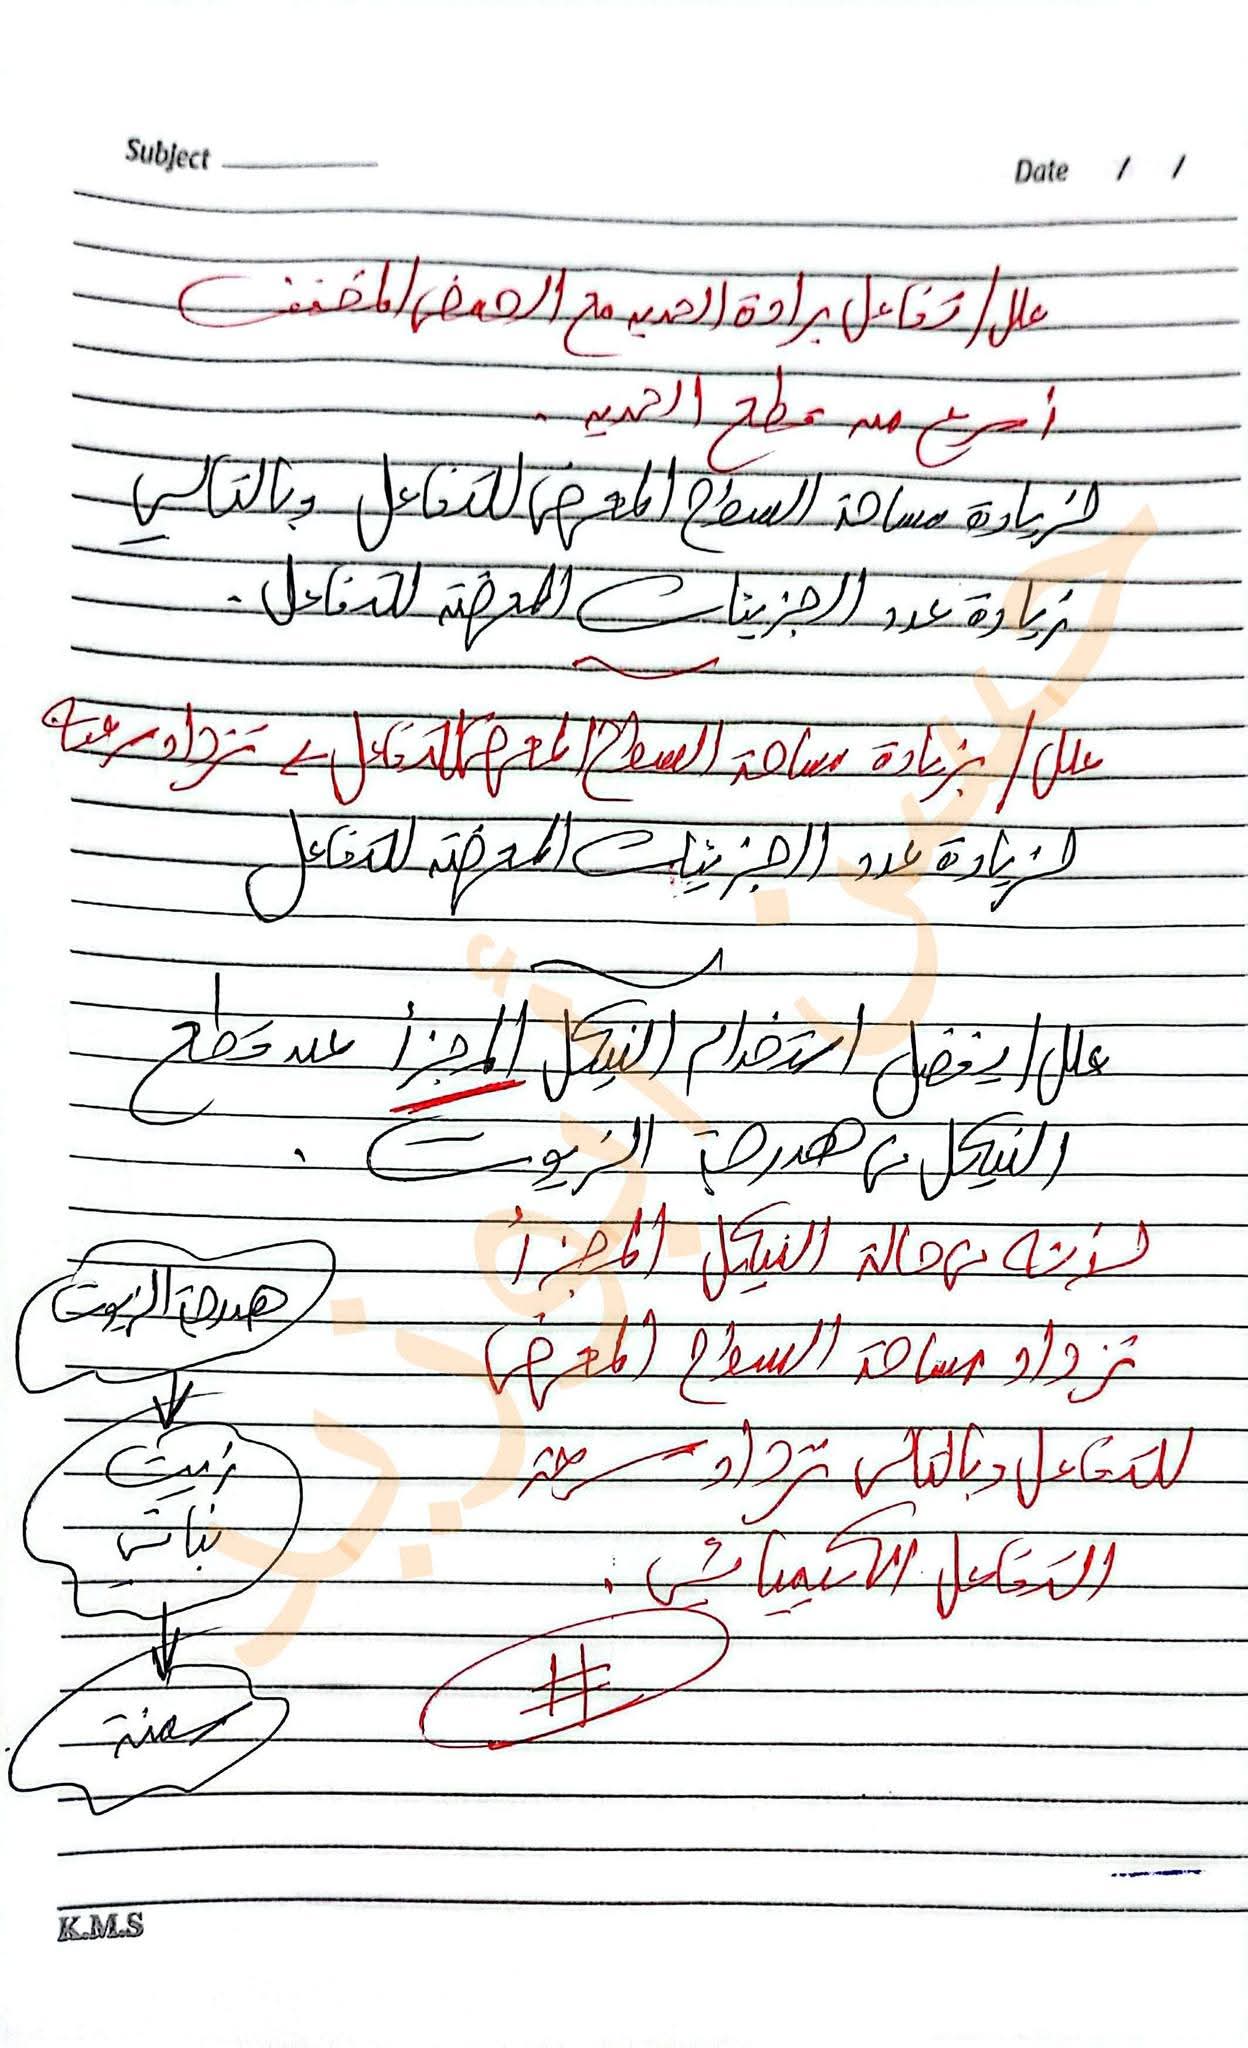 Subject
Date / /
علل/ تفاعل برادة الحديد مع الحمض المخفف
أسرع من قطع الحديد .
لزيادة مساحة السطح المعرض للتفاعل وبالتالي
زيادة عدد الجزيئات المعرضة للتفاعل .
علل/ بزيادة مساحة السطح المعرض للتفاعل تزداد سرعته
لزيادة عدد الجزيئات المعرضة للتفاعل
علل/ يفضل استخدام النيكل المجزأ عن قطع
النيكل في هدرجة الزيوت .
لأنه في حالة النيكل المجزأ
تزداد مساحة السطح المعرض
للتفاعل وبالتالي تزداد سرعة
التفاعل الكيميائي .
#
هدرجة الزيوت
زيت
نباتي
سمنة
K.M.S
حسين أبو زيد